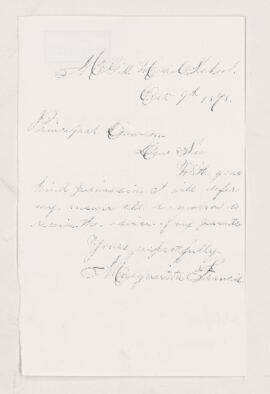 McGill Model School.
Oct 9th 1878.
Principal Dawson
Dear Sir
With your
kind permission I will defer
my answer till to-morrow to
receive the advice of my parents
Yours respectfully
Marguerite